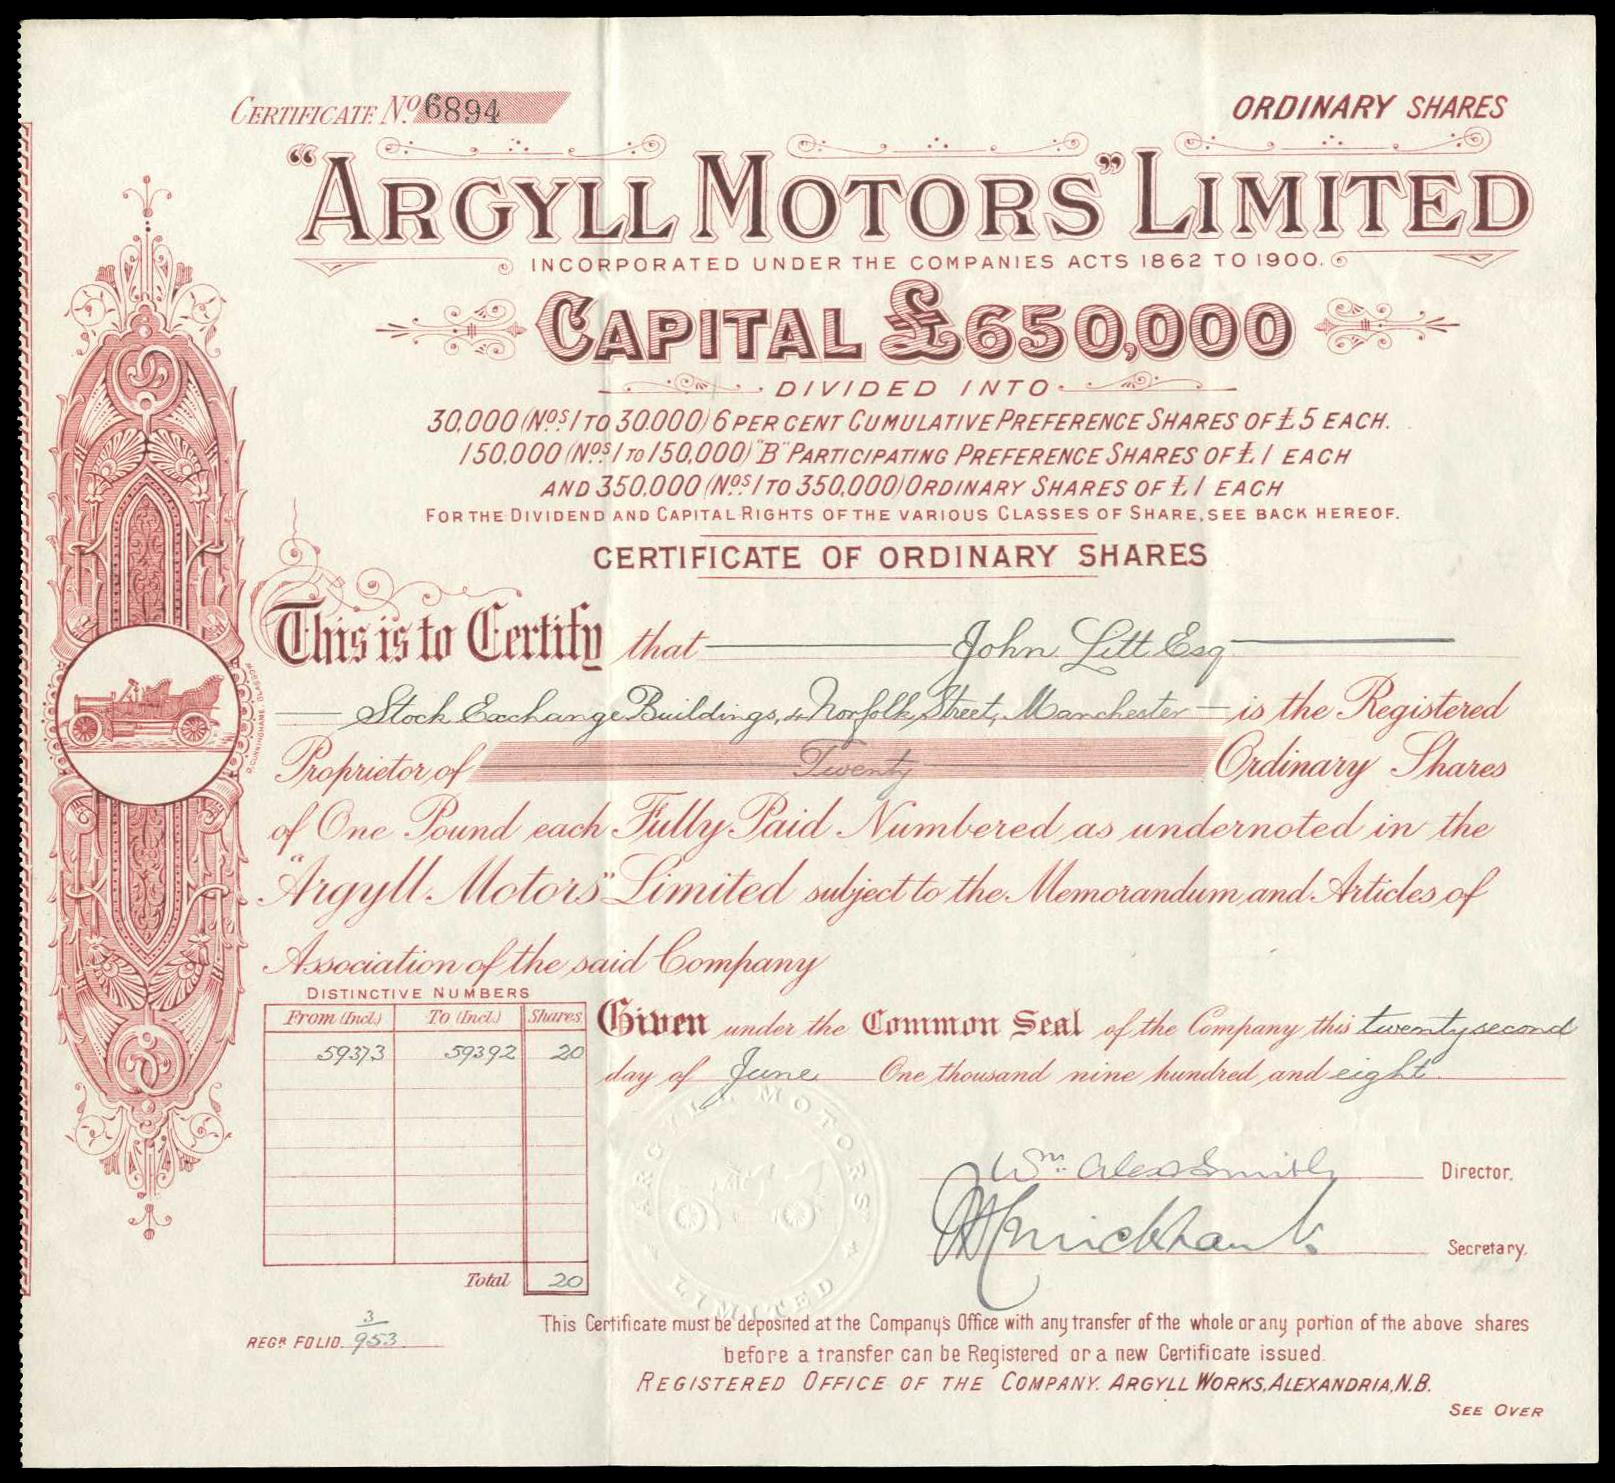 CERTIFICATE No. 6894
ORDINARY SHARES
"ARGYLL MOTORS" LIMITED
INCORPORATED UNDER THE COMPANIES ACTS 1862 TO 1900.
CAPITAL £650,000
DIVIDED INTO
30,000 (Nos. 1 TO 30.000) 6 PER CENT CUMULATIVE PREFERENCE SHARES OF £5 EACH.
150,000 (Nos. 1 TO 150,000) "B" PARTICIPATING PREFERENCE SHARES OF £1 EACH
AND 350,000 (Nos. 1 TO 350,000) ORDINARY SHARES OF £1 EACH
FOR THE DIVIDEND AND CAPITAL RIGHTS OF THE VARIOUS CLASSES OF SHARE, SEE BACK HEREOF.
CERTIFICATE OF ORDINARY SHARES
This is to Certify that John Litt Esq
Stock Exchange Buildings, 4 Norfolk Street, Manchester is the Registered
Proprietor of Twenty Ordinary Shares
of One Pound each Fully Paid Numbered as undernoted in the
"Argyll Motors" Limited subject to the Memorandum and Articles of
Association of the said Company
D. CUNNINGHAME. GLASGOW
DISTINCTIVE NUMBERS
From (Incl.) To (Incl.) Shares
59373 59392 20
Total 20
Given under the Common Seal of the Company this twenty second
day of June One thousand nine hundred and eight
ARGYLL MOTORS
LIMITED
Wm. Alex Smith Director.
Secretary.
REGR. FOLIO. 3/953
This Certificate must be deposited at the Company's Office with any transfer of the whole or any portion of the above shares
before a transfer can be Registered or a new Certificate issued.
REGISTERED OFFICE OF THE COMPANY. ARGYLL WORKS, ALEXANDRIA, N.B.
SEE OVER